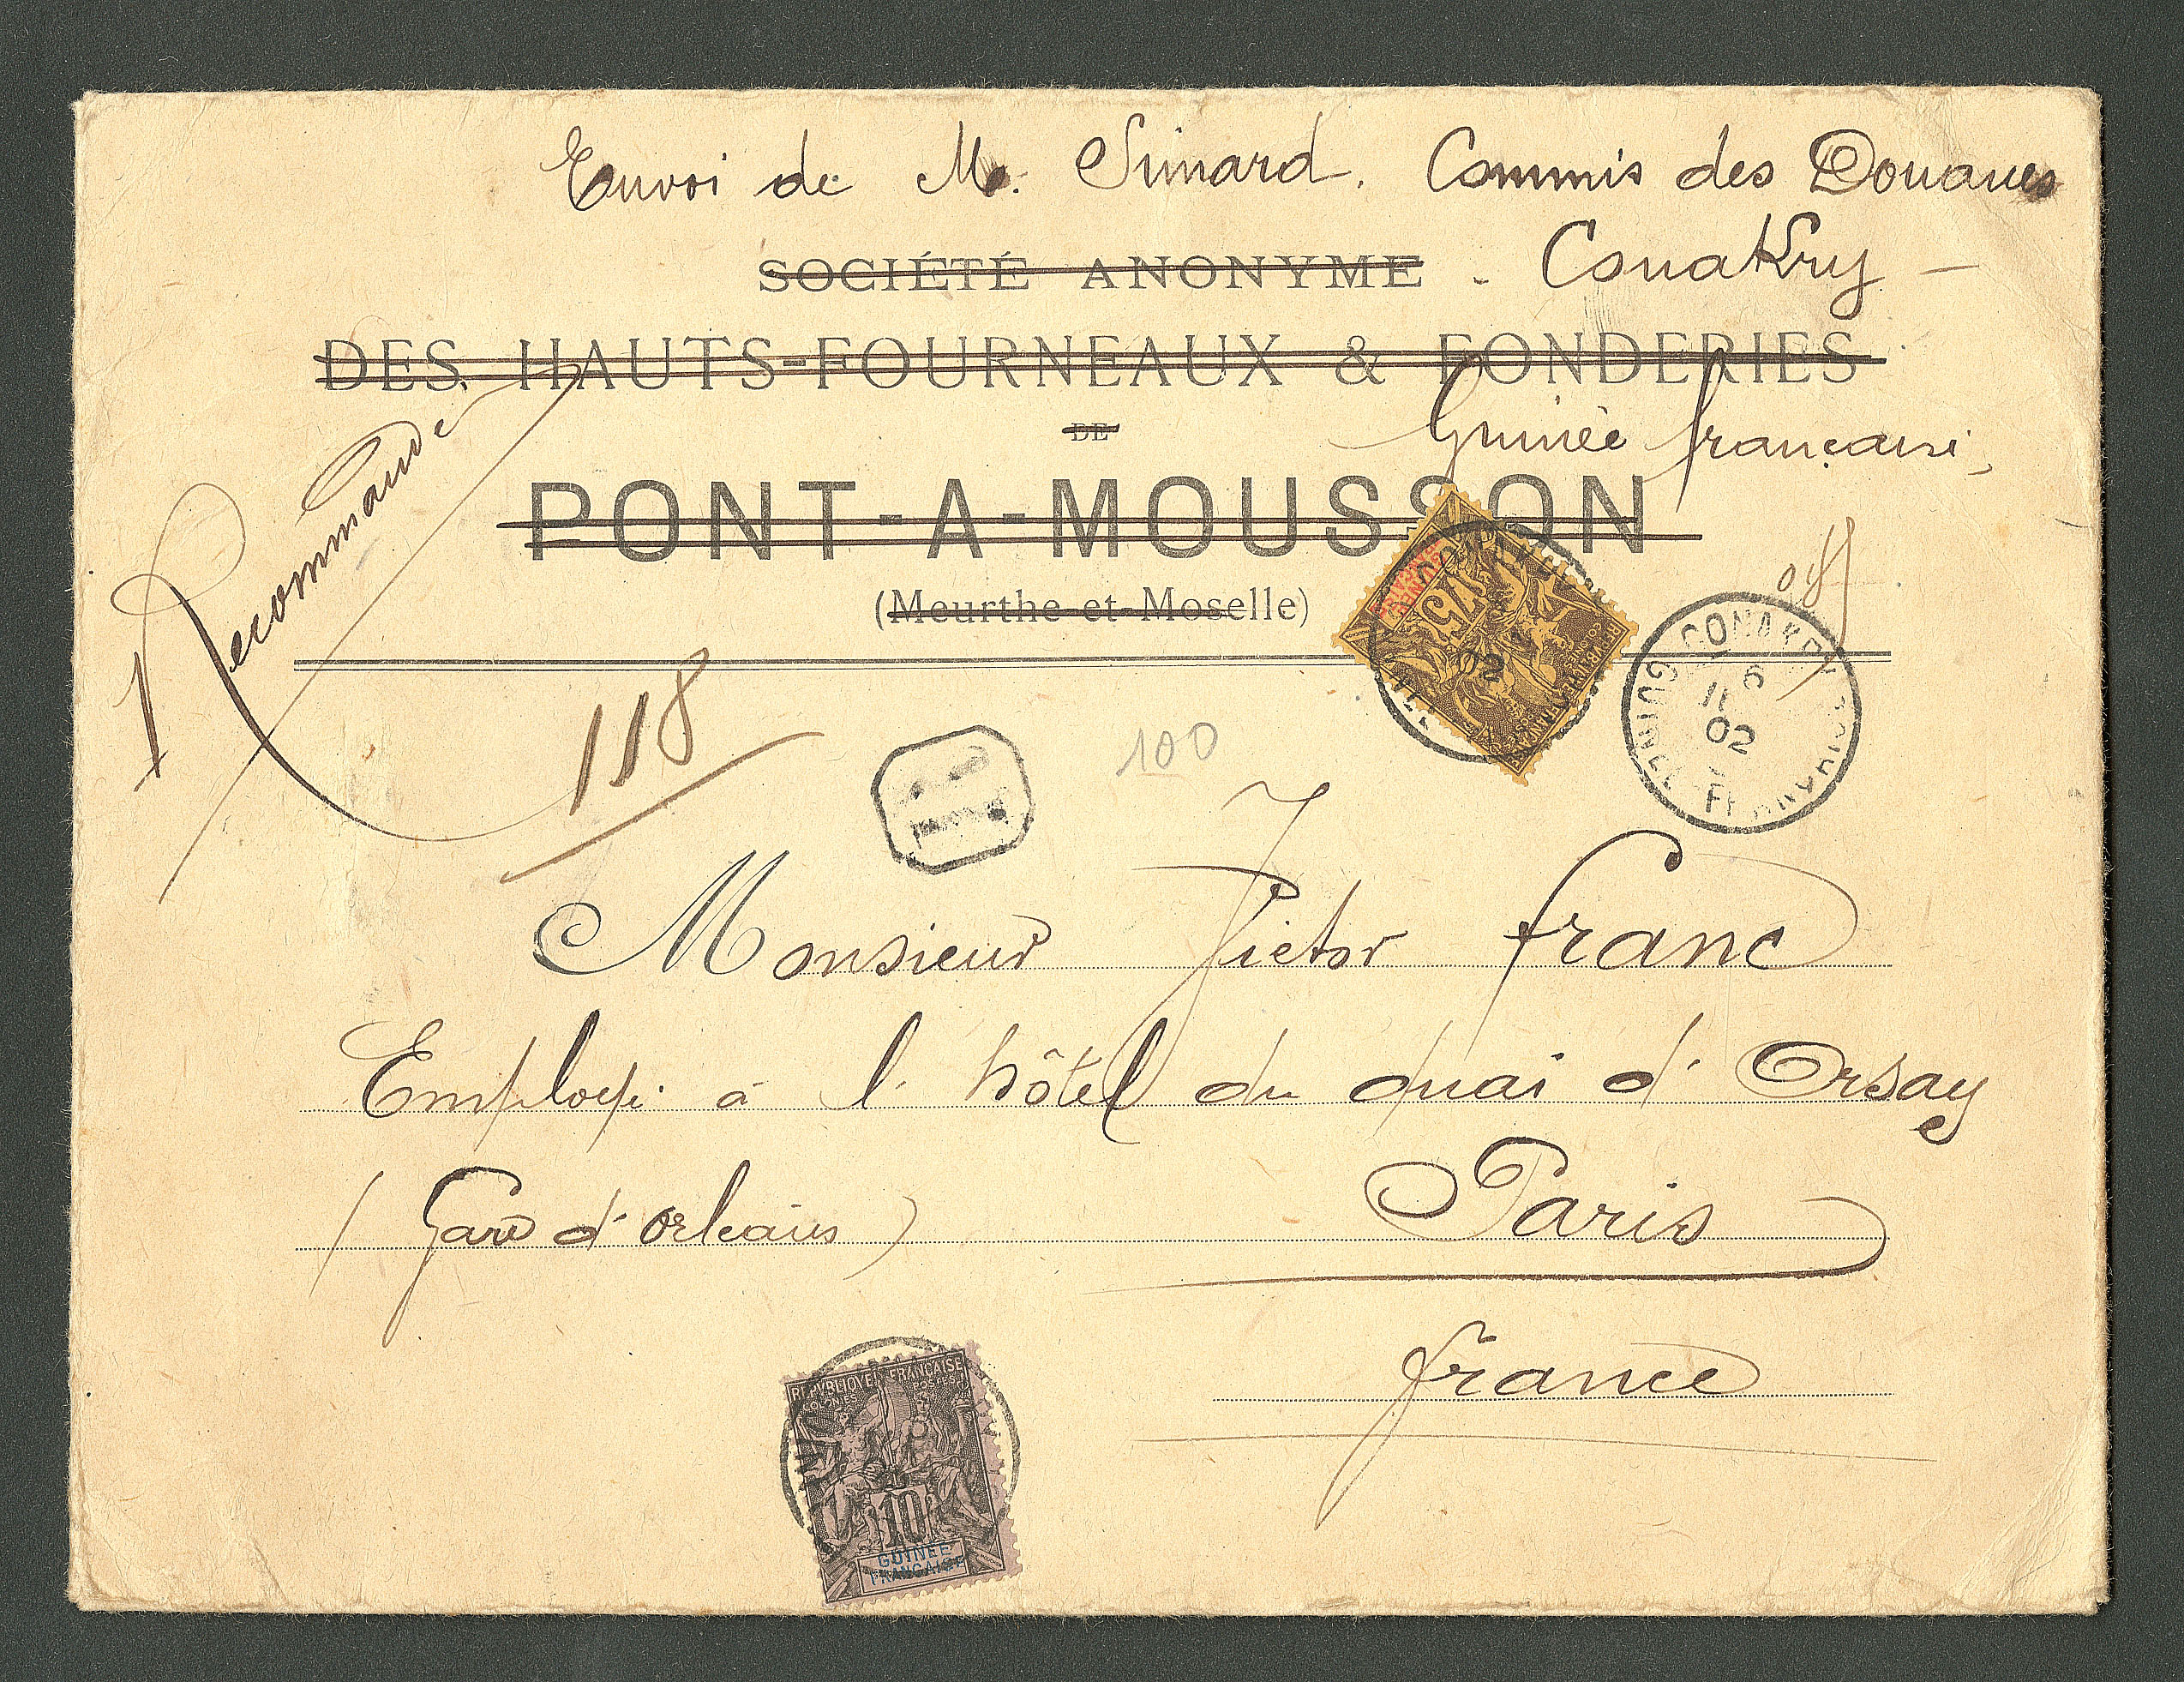 Envoi de Mr. Simard. Commis des Douanes
SOCIÉTÉ ANONYME - Conakry -
DES HAUTS-FOURNEAUX & FONDERIES
DE
Guinée française,
PONT-A-MOUSSON
(Meurthe-et-Moselle)
Recommandé
118
100
75
RÉPUBLIQUE FRANÇAISE
02
CONAKRY
6
11
02
Monsieur Victor franc
Employé à l'hôtel du quai d'Orsay
(Gare d'orléans) Paris
france
RÉPUBLIQUE FRANÇAISE
COLONIES
10
GUINÉE
FRANÇAISE